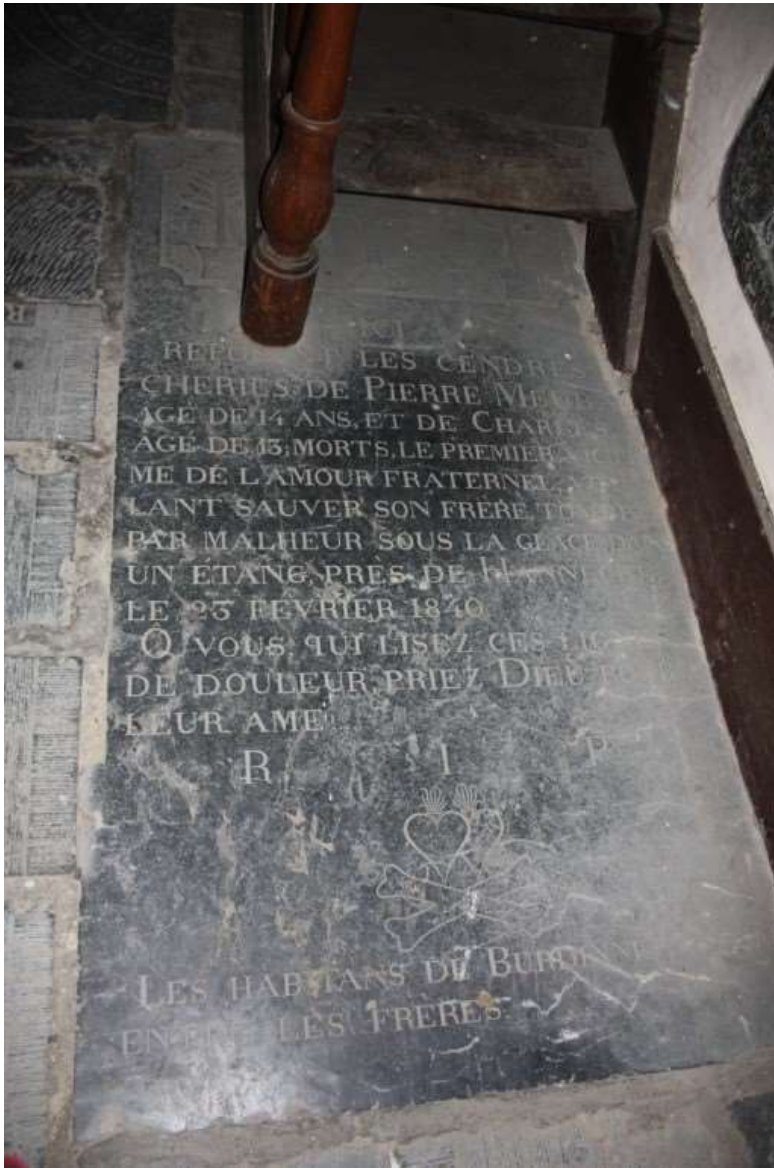 ICI
LES CENDRES
CHERIES DE PIERRE
AGÉ DE 14 ANS, ET DE CHARLES
AGÉ DE 13, MORTS, LE PREMIER
ME DE L'AMOUR FRATERNEL,
LANT SAUVER SON FRERE,
PAR MALHEUR SOUS LA GLACE DANS
UN ETANG, PRES DE
LE 23 FEVRIER 1840
Ô VOUS, QUI LISEZ CES
DE DOULEUR, PRIEZ DIEU
LEUR AME
R I P
LES HABITANS DE
LES FRÈRES.